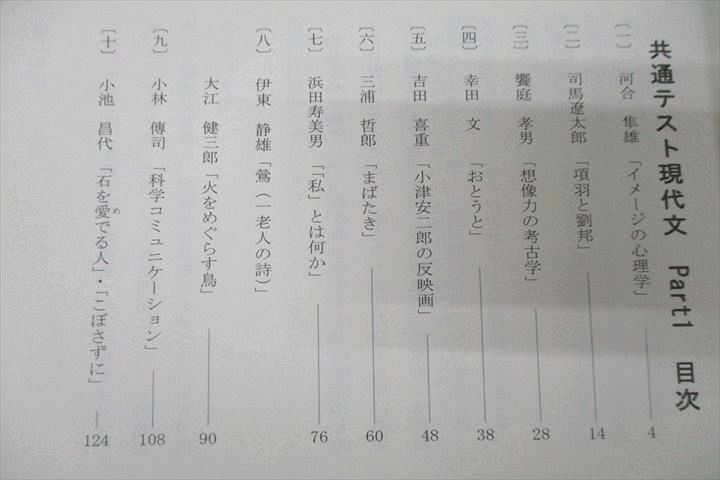 共通テスト現代文 Part1 目次
〔一〕 河合 隼雄 「イメージの心理学」 4
〔二〕 司馬遼太郎 「項羽と劉邦」 14
〔三〕 饗庭 孝男 「想像力の考古学」 28
〔四〕 幸田 文 「おとうと」 38
〔五〕 吉田 喜重 「小津安二郎の反映画」 48
〔六〕 三浦 哲郎 「まばたき」 60
〔七〕 浜田寿美男 「「私」とは何か」 76
〔八〕 伊東 静雄 「鶯(一老人の詩)」
大江 健三郎 「火をめぐらす鳥」 90
〔九〕 小林 傳司 「科学コミュニケーション」 108
〔十〕 小池 昌代 「石を愛でる人」・「こぼさずに」 124
め